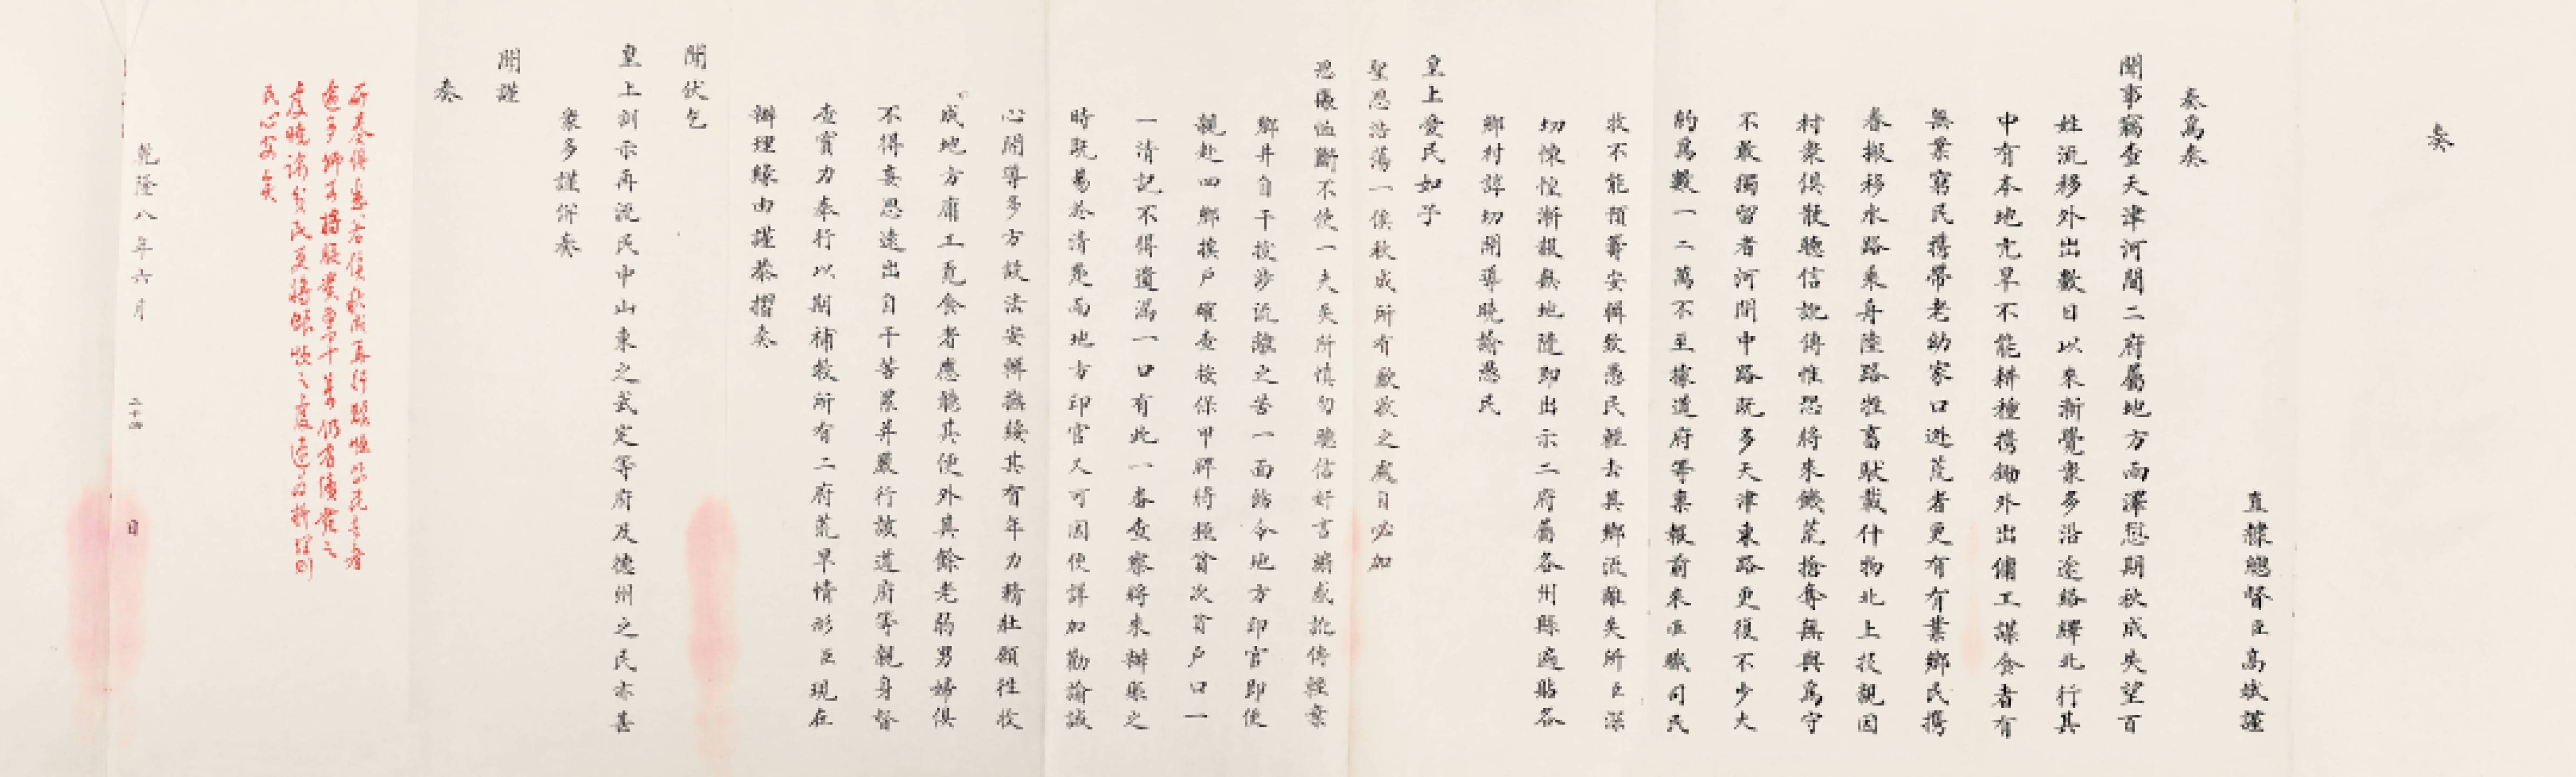 奏
直隸總督臣高斌謹
奏為奏
聞事竊查天津河間二府屬地方雨澤愆期秋成失望百
姓流移外出數日以來漸覺衆多沿途絡繹北行其
中有本地亢旱不能耕種攜鋤外出傭工謀食者有
無業窮民携帶老幼家口逃荒者更有有業鄉民攜
眷搬移水路乘舟陸路牲畜馱載什物北上投親因
村衆俱散聽信訛傳惟恐將來饑荒搶奪無與為守
不敢獨留者河間中路既多天津東路更復不少大
約萬數一二萬不至據道府等稟報前來臣職司民
牧不能預籌安輯致愚民輕去其鄉流離失所臣深
切悚惶漸報無地隨即出示二府屬各州縣遍貼各
鄉村諄切開導曉諭愚民
皇上愛民如子
聖恩浩蕩一俟秋成所有歉收之處自必加
恩賑恤斷不使一夫失所慎勿聽信奸言煽惑訛傳輕棄
鄉井自干拔涉流離之苦一面飭令地方印官即使
親赴四鄉挨戶確查按保甲牌將極貧次貧戶口一
一清記不得遺漏一口有此一番查察將來辦賑之
時既易於清楚而地方印官又可因便詳加勸諭誠
心開導多方設法安輯撫綏其有年力精壯願往收
成地方庸工覓食者應聽其便外其餘老弱男婦俱
不得妄思遠出自干苦累并嚴行該道府等親身督
查實力奉行以期補救所有二府荒旱情形臣現在
辦理緣由謹恭摺奏
聞伏乞
皇上訓示再流民中山東之武定等府及德州之民亦甚
衆多謹併奏
聞謹
奏
所奏俱悉若俟秋成再行賑恤恐民去者
愈多
民心安矣
乾隆八年六月二十四日